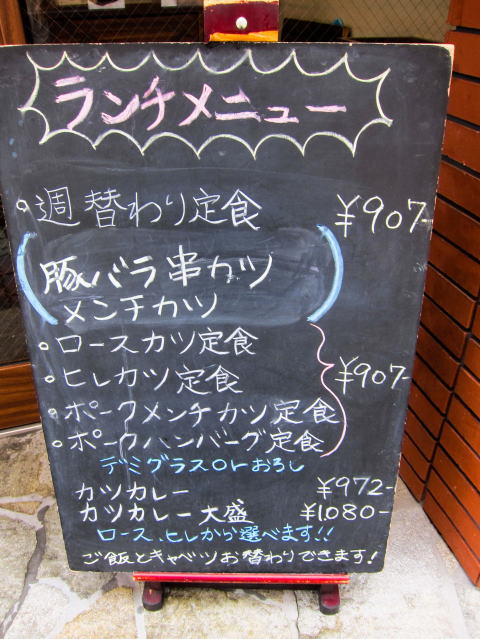 ランチメニュー
○週替わり定食 ¥907-
(豚バラ串カツ
メンチカツ)
○ロースカツ定食
○ヒレカツ定食 ¥907-
○ポークメンチカツ定食
○ポークハンバーグ定食
デミグラスorおろし
カツカレー ¥972-
カツカレー大盛 ¥1080-
ロース、ヒレから選べます!!
ご飯とキャベツお替わりできます!